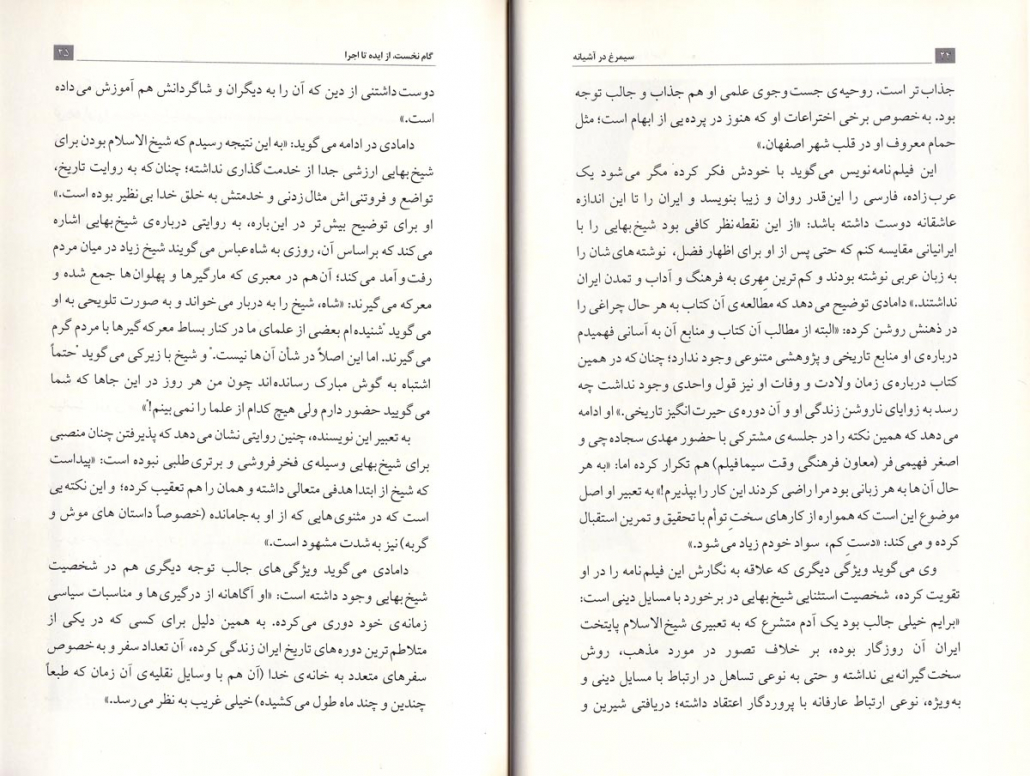 ۲۴
سیمرغ در آشیانه
جذاب‌تر است. روحیه‌ی جست‌وجوی علمی او هم جذاب و جالب توجه
بود. به‌خصوص برخی اختراعات او که هنوز در پرده‌یی از ابهام است؛ مثل
حمام معروف او در قلب شهر اصفهان.»
این فیلم‌نامه‌نویس می‌گوید با خودش فکر کرده مگر می‌شود یک
عرب‌زاده، فارسی را این‌قدر روان و زیبا بنویسد و ایران را تا این اندازه
عاشقانه دوست داشته باشد: «از این نقطه‌نظر کافی بود شیخ‌بهایی را با
ایرانیانی مقایسه کنم که حتی پس از او برای اظهار فضل، نوشته‌های‌شان را
به زبان عربی نوشته بودند و کم‌ترین مهری به فرهنگ و آداب و تمدن ایران
نداشتند.» دامادی توضیح می‌دهد که مطالعه‌ی آن کتاب به هر حال چراغی را
در ذهنش روشن کرده: «البته از مطالب آن کتاب و منابع آن به آسانی فهمیدم
درباره‌ی او منابع تاریخی و پژوهشی متنوعی وجود ندارد؛ چنان‌که در همین
کتاب درباره‌ی زمان ولادت و وفات او نیز قول واحدی وجود نداشت چه
رسد به زوایای ناروشن زندگی او و آن دوره‌ی حیرت‌انگیز تاریخی.» او ادامه
می‌دهد که همین نکته را در جلسه‌ی مشترکی با حضور مهدی سجاده‌چی و
اصغر فهیمی‌فر (معاون فرهنگی وقت سیمافیلم) هم تکرار کرده اما: «به هر
حال آن‌ها به هر زبانی بود مرا راضی کردند این کار را بپذیرم!» به تعبیر او اصل
موضوع این است که همواره از کارهای سختِ توأم با تحقیق و تمرین استقبال
کرده و می‌کند: «دستِ‌کم، سواد خودم زیاد می‌شود.»
وی می‌گوید ویژگی دیگری که علاقه به نگارش این فیلم‌نامه را در او
تقویت کرده، شخصیت استثنایی شیخ‌بهایی در برخورد با مسایل دینی است:
«برایم خیلی جالب بود یک آدم متشرع که به تعبیری شیخ‌الاسلام پایتخت
ایران آن روزگار بوده، بر خلاف تصور در مورد مذهب، روش
سخت‌گیرانه‌یی نداشته و حتی به نوعی تساهل در ارتباط با مسایل دینی و
به‌ویژه، نوعی ارتباط عارفانه با پروردگار اعتقاد داشته؛ دریافتی شیرین و
گام نخست، از ایده تا اجرا
۲۵
دوست‌داشتنی از دین که آن را به دیگران و شاگردانش هم آموزش می‌داده
است.»
دامادی در ادامه می‌گوید: «به این نتیجه رسیدم که شیخ‌الاسلام بودن برای
شیخ‌بهایی ارزشی جدا از خدمت‌گذاری نداشته؛ چنان‌که به روایت تاریخ،
تواضع و فروتنی‌اش مثال‌زدنی و خدمتش به خلق خدا بی‌نظیر بوده است.»
او برای توضیح بیش‌تر در این‌باره، به روایتی درباره‌ی شیخ‌بهایی اشاره
می‌کند که براساس آن، روزی به شاه‌عباس می‌گویند شیخ زیاد در میان مردم
رفت‌وآمد می‌کند؛ آن‌هم در معبری که مارگیرها و پهلوان‌ها جمع شده و
معرکه می‌گیرند: «شاه، شیخ را به دربار می‌خواند و به صورت تلویحی به او
می‌گوید "شنیده‌ام بعضی از علمای ما در کنار بساط معرکه‌گیرها با مردم گرم
می‌گیرند. اما این اصلاً در شأن آن‌ها نیست." و شیخ با زیرکی می‌گوید "حتماً
اشتباه به گوش مبارک رسانده‌اند چون من هر روز در این جاها که شما
می‌گویید حضور دارم ولی هیچ کدام از علما را نمی‌بینم!"»
به تعبیر این نویسنده، چنین روایتی نشان می‌دهد که پذیرفتن چنان منصبی
برای شیخ‌بهایی وسیله‌ی فخرفروشی و برتری‌طلبی نبوده است: «پیداست
که شیخ از ابتدا هدفی متعالی داشته و همان را هم تعقیب کرده؛ و این نکته‌یی
است که در مثنوی‌هایی که از او به‌جامانده (خصوصاً داستان های موش و
گربه) نیز به‌شدت مشهود است.»
دامادی می‌گوید ویژگی‌های جالب توجه دیگری هم در شخصیت
شیخ‌بهایی وجود داشته است: «او آگاهانه از درگیری‌ها و مناسبات سیاسی
زمانه‌ی خود دوری می‌کرده. به همین دلیل برای کسی که در یکی از
متلاطم‌ترین دوره‌های تاریخ ایران زندگی کرده، آن تعداد سفر و به‌خصوص
سفرهای متعدد به خانه‌ی خدا (آن هم با وسایل نقلیه‌ی آن زمان که طبعاً
چندین و چند ماه طول می‌کشیده) خیلی غریب به نظر می‌رسد.»